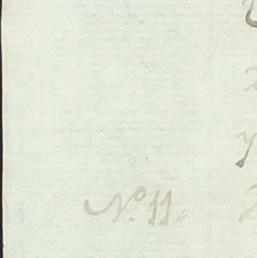 Nº 11.